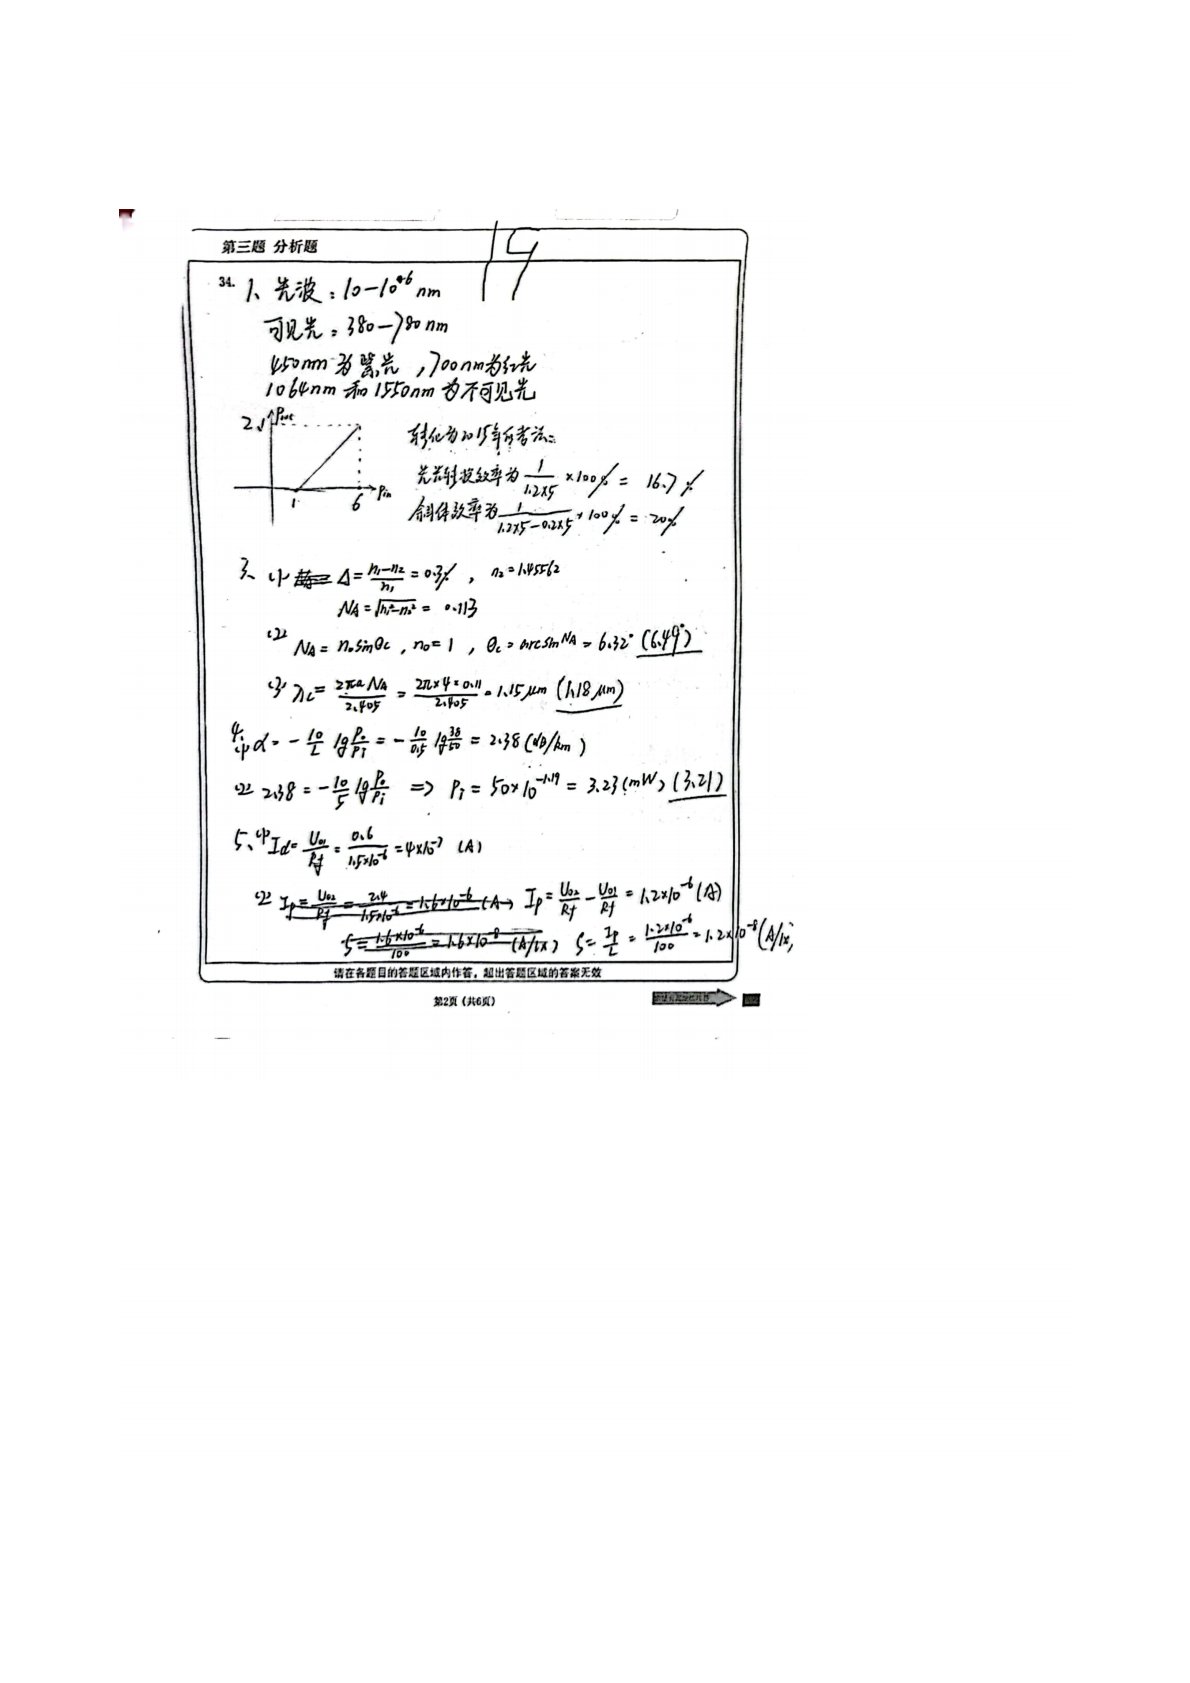 19
第三题 分析题
34. 1、光波：10—10^6 nm
可见光：380—780nm
450nm为紫光，700nm为红光
1064nm和1550nm为不可见光
2、 Pout
1 6 Pin
转化为2015年所考法：
光光转换效率为 1/(1.2×5) ×100% = 16.7%
斜体效率为 1/(1.2×5-0.2×5) ×100% = 20%
3、(1) Δ=(n1-n2)/n1=0.3%，n2=1.45562
NA=√(n1²-n2²) = 0.113
(2) NA = n0sinθc，n0=1，θc=arcsin NA = 6.32° (6.49°)
(3) λc= 2πa NA/2.405 = 2π×4×0.11/2.405 = 1.15μm (1.18μm)
4、(1) α = - 10/L lg P0/Pi = - 10/0.5 lg 38/50 = 2.38 (dB/km)
(2) 2.38 = - 10/5 lg P0/Pi => Pi = 50×10^-1.19 = 3.23(mW) (3.21)
5、(1) Id= U01/Rf = 0.6/1.5×10^-6 =4×10^-7 (A)
(2) Ip= U02/Rf = 2.4/1.5×10^-6 =1.6×10^-6 (A) Ip= U02/Rf - U01/Rf = 1.2×10^-6 (A)
S= 1.6×10^-6/100 = 1.6×10^-8 (A/lx) S= Ip/L = 1.2×10^-6/100 = 1.2×10^-8 (A/lx)
请在各题目的答题区域内作答，超出答题区域的答案无效
第2页（共6页）